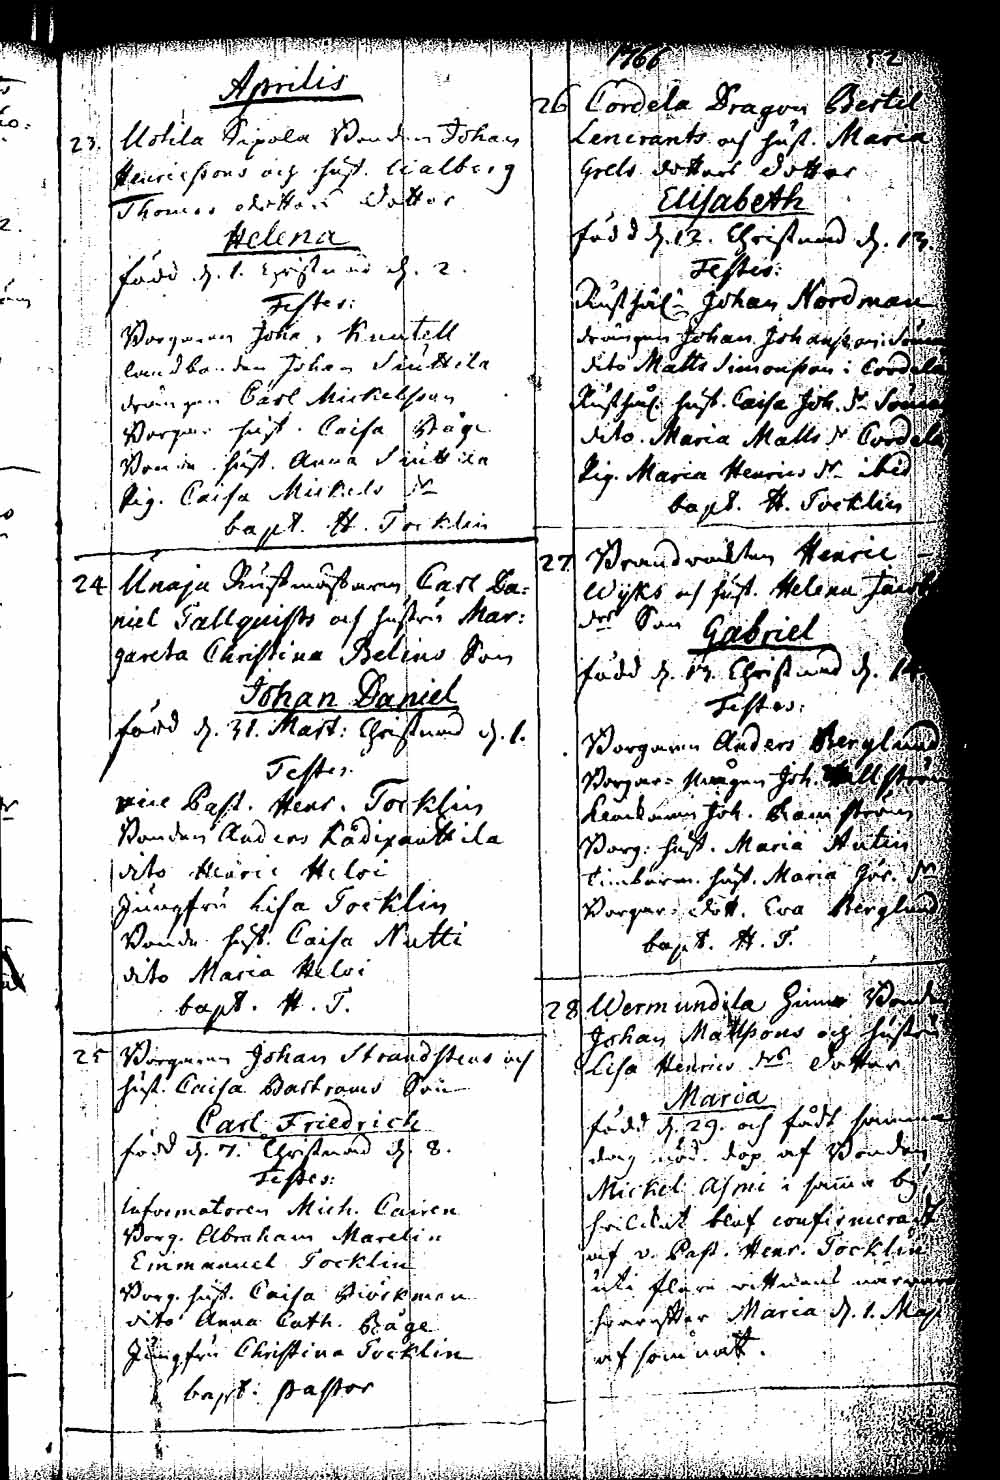 Aprilis
23. Uotila Sipola Bonden Johan
Henricssons och hust. Walberg
Thomas dotters dotter
Helena
född d. 1. Christnad d. 2.
Testes:
Borgaren Johan Knutell
landbonden Johan Sinttila
drängen Carl Mickelsson
Borgar hust. Caisa Båge
Bonde hust. Anna Sinttila
Pig. Caisa Mickels dr
bapt. H. Tocklin
24 Unaja Rustmästaren Carl Da=
niel Fallquists och hustru Mar:
gareta Christina Belins Son
Johan Daniel
född d. 31. Mart: Christnad d. 1.
Testes.
vice Past. Henr. Tocklin
Bonden Anders Rådixanttila
dito Henric Heloi
Jungfru Lisa Tocklin
Bonde hust. Caisa Nutti
dito Maria Heloi
bapt. H. T.
25 Borgaren Johan Strandstens och
hust. Caisa Bartrams Son
Carl Friedrich
född d. 7. Christnad d. 8.
Testes:
Informatoren Mich. Cairen
Borg. Abraham Marelin
Emmanuel Tocklin
Borg. hust. Caisa Biörkman
dito Anna Cath. Båge
Jungfru Christina Tocklin
bapt: pastor
1766 52
26 Cordela Dragon Bertel
Lencrants och hust. Maria
Grels dotters dotter
Elisabeth
född d. 12. Christnad d. 13.
Testes:
Rusthål: Johan Nordman
drängen Johan Johansson i
dito Matts Simonsson i Cordela
Rusthål. hust. Caisa Joh. dr
dito. Maria Matts dr Cordela
Pig. Maria Henrics dr ibid
bapt. H. Tocklin
27 Brandvakten Henric
Wijks och hust. Helena Jacobs
drs Son Gabriel
född d. 13. Christnad d. 14.
Testes:
Borgaren Anders Berglund
Borgar= Joh.
Joh. Ramström
Borg: hust. Maria Autin
timberm. hust. Maria Gör. dr
Borgar= dött. Eva Berglund
bapt. H. T.
28 Wermundila Bonden
Johan Mattssons och hustru
Lisa Henrics drs dotter
Maria
född d. 29. och fådt samma
dag nöd. dop af Bonden
Mickel i samma by,
hvilket blef confirmeradt
af v. Past. Henr. Tocklin
uti flere vittnens närvaro
hvarefter Maria d. 1. Maj
afsomnat.